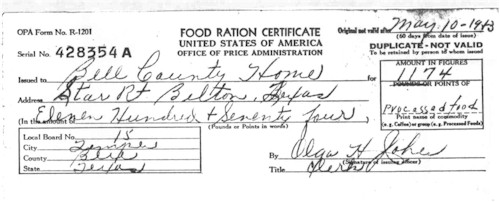 OPA Form No. R-1201
FOOD RATION CERTIFICATE
Original not valid after May 10-1943
(60 days after date of issue)
UNITED STATES OF AMERICA
Serial No. 428354 A
OFFICE OF PRICE ADMINISTRATION
DUPLICATE - NOT VALID
To be retained by person to whom issued
Issued to Bell County Home for
AMOUNT IN FIGURES
1174
POUNDS OR POINTS OF
Address Star Rt Belton, Texas
(In the amount Eleven Hundred & Seventy Four,
(Pounds or Points in words)
Processed food
Print name of commodity
(e.g. Coffee) or group (e.g. Processed Foods)
Local Board No. 15
City Temple
County Bell
State Texas
By Olga H
(Signature of issuing officer)
Title Clerk